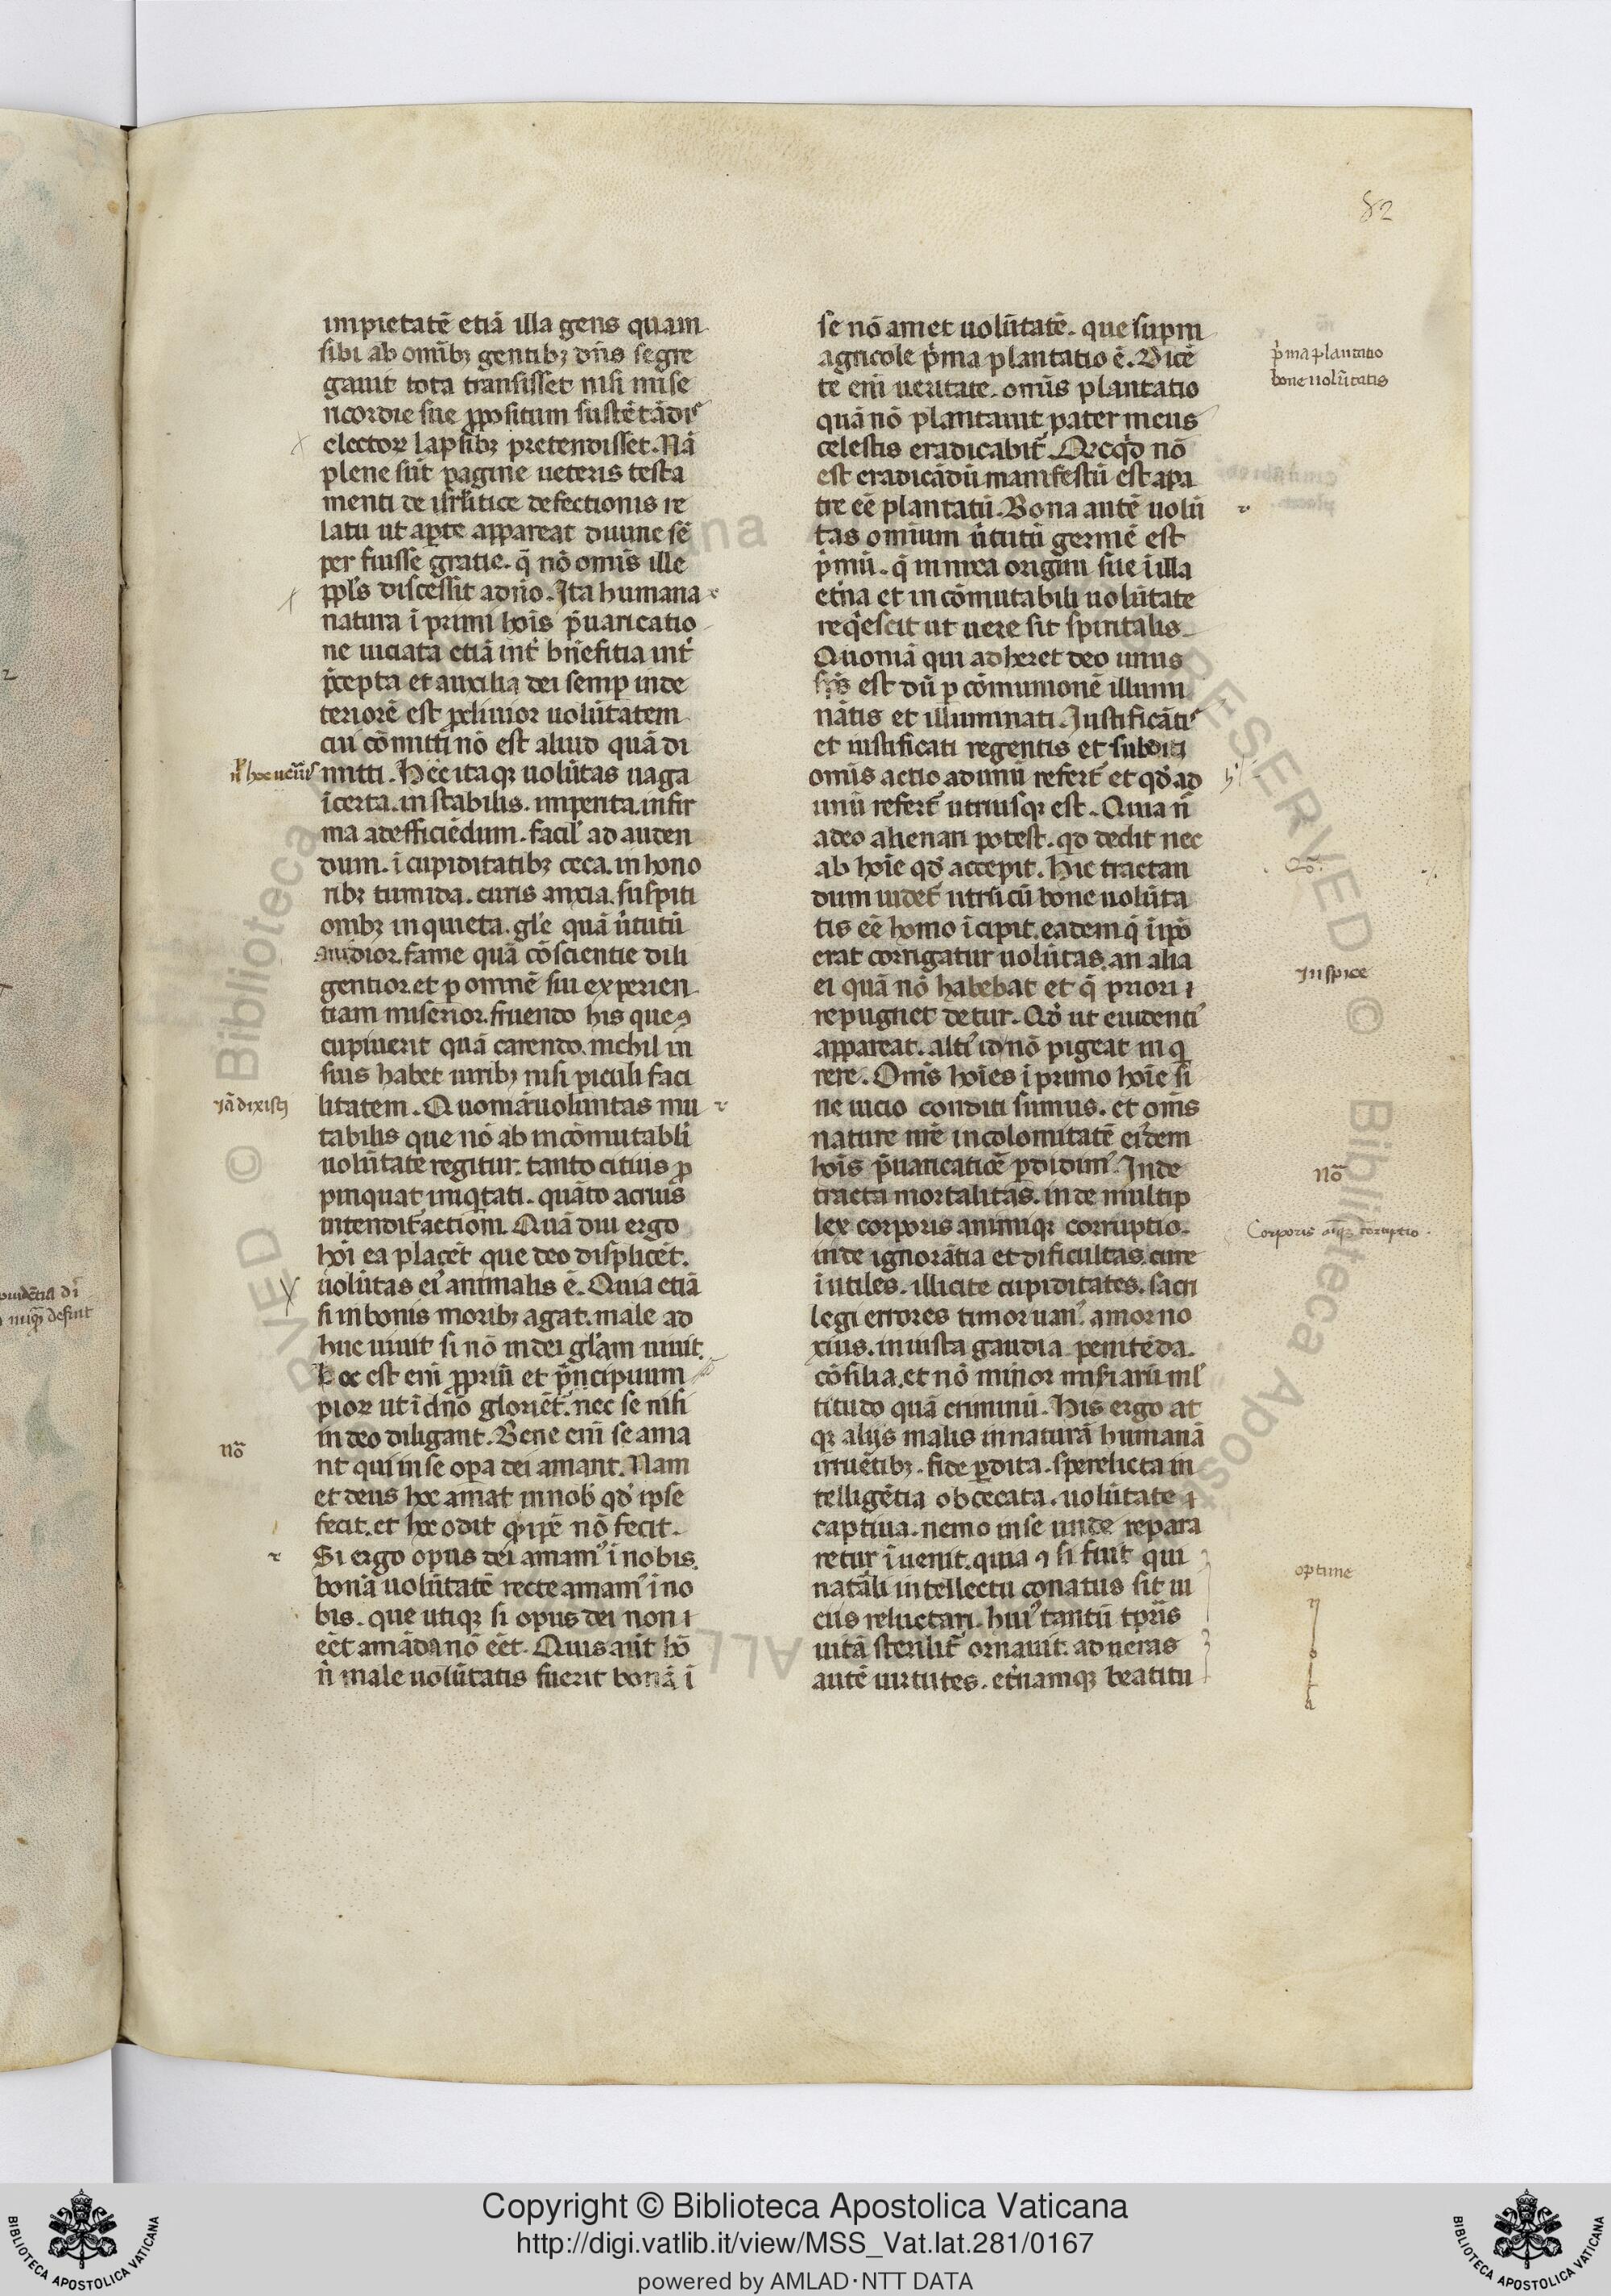 82
impietatē etiā illa gens quam
sibi ab omībꝫ gentibꝫ dn̄s segre
gauit tota transisset nisi mise
ricordie sue ꝓpositum sustētādis
electoꝝ lapsibꝫ pretendisset. Nā
plene sūt pagine ueteris testa
menti de isrl̄itice defectionis re
latu ut aꝑte appareat diuine sē
per fuisse gratie. q̄ nō omīs ille
ppl̄s discessit a dn̄o. Ita humana
natura ī primi hoīs p̄uaricatio
ne uiciata etiā int̄ bn̄efitia int̄
p̄cepta et auxilia dei semp in de
teriorē est ꝓcliuior uolūtatem
cui cōmitti nō est aliud quā di
mitti. Hec itaqꝫ uolūtas uaga
īcerta. instabilis. imperita. infir
ma ad efficiēdum. facil' ad auden
dum. ī cupiditatibꝫ ceca. in hono
ribꝫ tumida. curis anxia. suspiti
onibꝫ inquieta. gl'e quā ūtutū
auidior. fame quā cōscientie dili
gentior. et p omnē sui experien
tiam miserior. fruendo his que ꝯ
cupiuerit quā carendo. nichil in
suis habet uiribꝫ nisi piculi faci
litatem. Quoniā uoluntas mu
tabilis que nō ab incōmutabli
uolūtate regitur. tanto citius ꝓ
pinquat iniq̇tati. quāto acrius
intendit̄ actiom̄. Quā diu ergo
hōi ea placēt que deo displicēt.
uolūtas ei' animalis ē. Quia etiā
si in bonis moribꝫ agat. male ad
huc uiuit si nō in dei gl'am uiuit.
Hoc est enī ꝓpriū et p̄ncipiuum
pioꝝ ut ī dn̄o gloriēt̄. nec se nisi
in deo diligant. Bene enī se ama
nt qui in se oꝑa dei amant. Nam
et deus hoc amat in nob' qd̄ ipse
fecit. et hoc odit qd̄ ip̄e nō fecit.
Si ergo opus dei amam' ī nobis
bonā uolūtatē recte amam' ī no
bis. que utiqꝫ si opus dei non
eēt amāda nō eēt. Quis aūt hō
n̄ male uolūtatis fuerit bonā ī
se nō amet uolūtatē. que supni
agricole p̄ma plantatio ē. Dicē
te enī ueritate. omīs plantatio
quā nō plantauit pater meus
celestis eradicabit̄. Qrcqd̄ nō
est eradicādū manifestū est a pa
tre eē plantatū. Bona autē uolū
tas omīum ūtutū germē est
p̄mū. q̄ in nixa origini sue ī illa
et̄na et incōmutabili uolūtate
req̇escit ut uere sit spiritalis.
Quoniā qui adheret deo unus
sp̄s est dū p cōmunionē illumi
nātis et illuminati. Iustificātis
et iustificati regentis et subditi
omīs actio ad unū refert̄ et qd̄ ad
unū refert̄ utriusqꝫ est. Quia n̄
a deo alienari potest. qd dedit nec
ab hoīe qd̄ accepit. Hic tractan
dum uidet̄ utrū cū bone uolūta
tis eē homo īcipit. eadem q̄ ī ip̄o
erat corrigatur uolūtas. an alia
ei quā nō habebat et q̄ priori
repugnet detur. Qd̄ ut euidenti'
appareat. alti' id nō pigeat inq̄
rere. Om̄s hoīes ī primo hoīe si
ne uicio conditi sumus. et om̄s
nature nr̄e incolomitatē ei'dem
hoīs p̄uaricatiōe ꝑdidim'. Inde
tracta mortalitas. inde multip
lex corporis animiqꝫ corruptio.
inde ignorātia et dificultas. cure
ī utiles. illicite cupiditates. sacri
legi errores timor uan'. amor no
xius. iniusta gaudia. penitēda.
cōsilia. et nō minor miseriarū mul
titudo quā criminū. His ergo at
qꝫ alijs malis in naturā humanā
irruētibꝫ. fide ꝑdita. spe relicta in
telligētia obcecata. uolūtate
captiua. nemo in se unde repara
retur īuenit. quia ꝯ si fuit qui
natāli intellectu conatus sit ui
cijs reluctari. hui' tantū tp̄ris
uitā sterilit̄ ornauit. ad ueras
autē uirtutes. et̄namqꝫ beatitu
p̄ma plantatio
bone uolūtatis
iā dixisti
nō
Inspice
nō
Corporis aīqꝫ corruptio.
optime
Copyright © Biblioteca Apostolica Vaticana
http://digi.vatlib.it/view/MSS_Vat.lat.281/0167
powered by AMLAD·NTT DATA
BIBLIOTECA APOSTOLICA VATICANA
BIBLIOTECA APOSTOLICA VATICANA